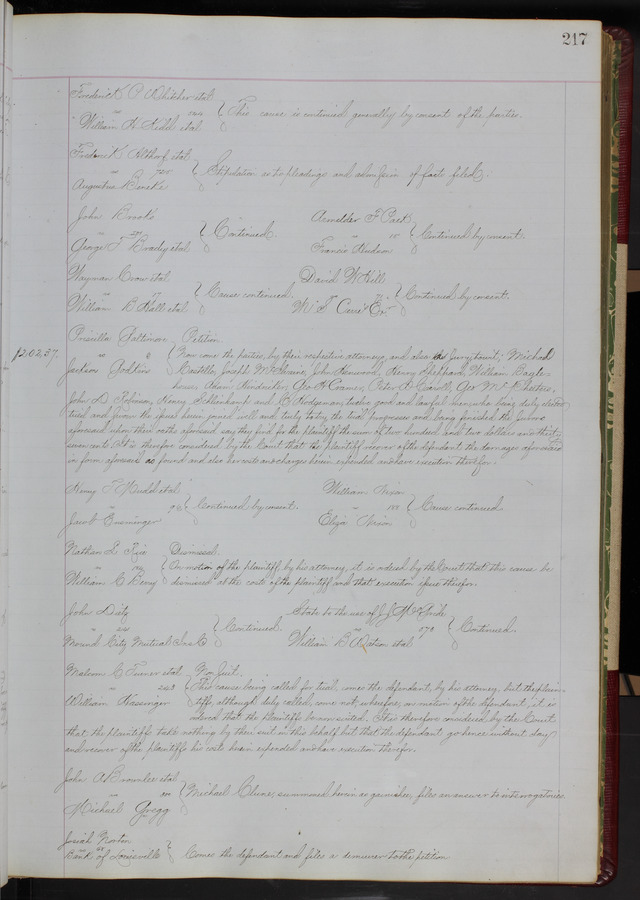 217
Frederick P et al
vs
William H et al } This cause is continued generally by consent of the parties.
Frederick Althof et al
vs
Augustus } Stipulation as to pleadings and of facts filed.
John Brooks
vs
George T Brady et al } Continued.
F Post
vs
Francis Hudson } Continued by consent.
Wayman Crow et al
vs
William B Hall et al } Cause continued.
David W Hill
vs
Wm S Exr } Continued by consent.
Priscilla Baltimore
vs
Jackson Petition.
$202.37.
Now come the parties, by their respective attorneys, and also the jury, to wit; Michael
Joseph John Henwood, Henry William
house, Adam Geo H Cramer, Peter Geo W
John D Robinson, Henry and C Hodgeman, twelve good and lawful men, who being duly elected
tried and sworn the issues herein joined well and truly to try, the trial progresses and being finished the jurors
aforesaid upon their oaths aforesaid say they find for the plaintiff the sum of two hundred and two dollars and thirty
seven cents. It is therefore considered by the Court that the plaintiff recover of the defendant the damages aforesaid
in form aforesaid as found and also her costs and charges herein expended and have execution therefor.
Henry T Mudd et al
vs
Jacob } Continued by consent.
William Nixon
vs
Eliza Nixon } Cause continued
Nathan L Rice
vs
William C Berry
Dismissed.
On motion of the plaintiff by his attorney, it is ordered by the Court that this cause be
dismissed at the costs of the plaintiff and that execution issue therefor.
John
vs
Mound City Mutual Ins Co } Continued.
State to the use of J J
vs 578
William B Watson et al } Continued.
C Turner et al
vs
William Kissinger
Non Suit.
This cause being called for trial comes the defendant, by his attorney, but the plain-
tiffs, although duly called, come not, wherefore, on motion of the defendant, it is
ordered that the plaintiffs be non suited. It is therefore considered by the Court
that the plaintiffs take nothing by their suit in this behalf but that the defendant go hence without day
and recover of the plaintiffs his costs herein expended and have execution therefor.
John A Brownlee et al
vs
Michael Gregg } Michael Clune, summoned herein as garnishee, files an answer to interrogatories.
Josiah Norton
vs
Bank of Louisville } Comes the defendant and files a demurrer to the petition